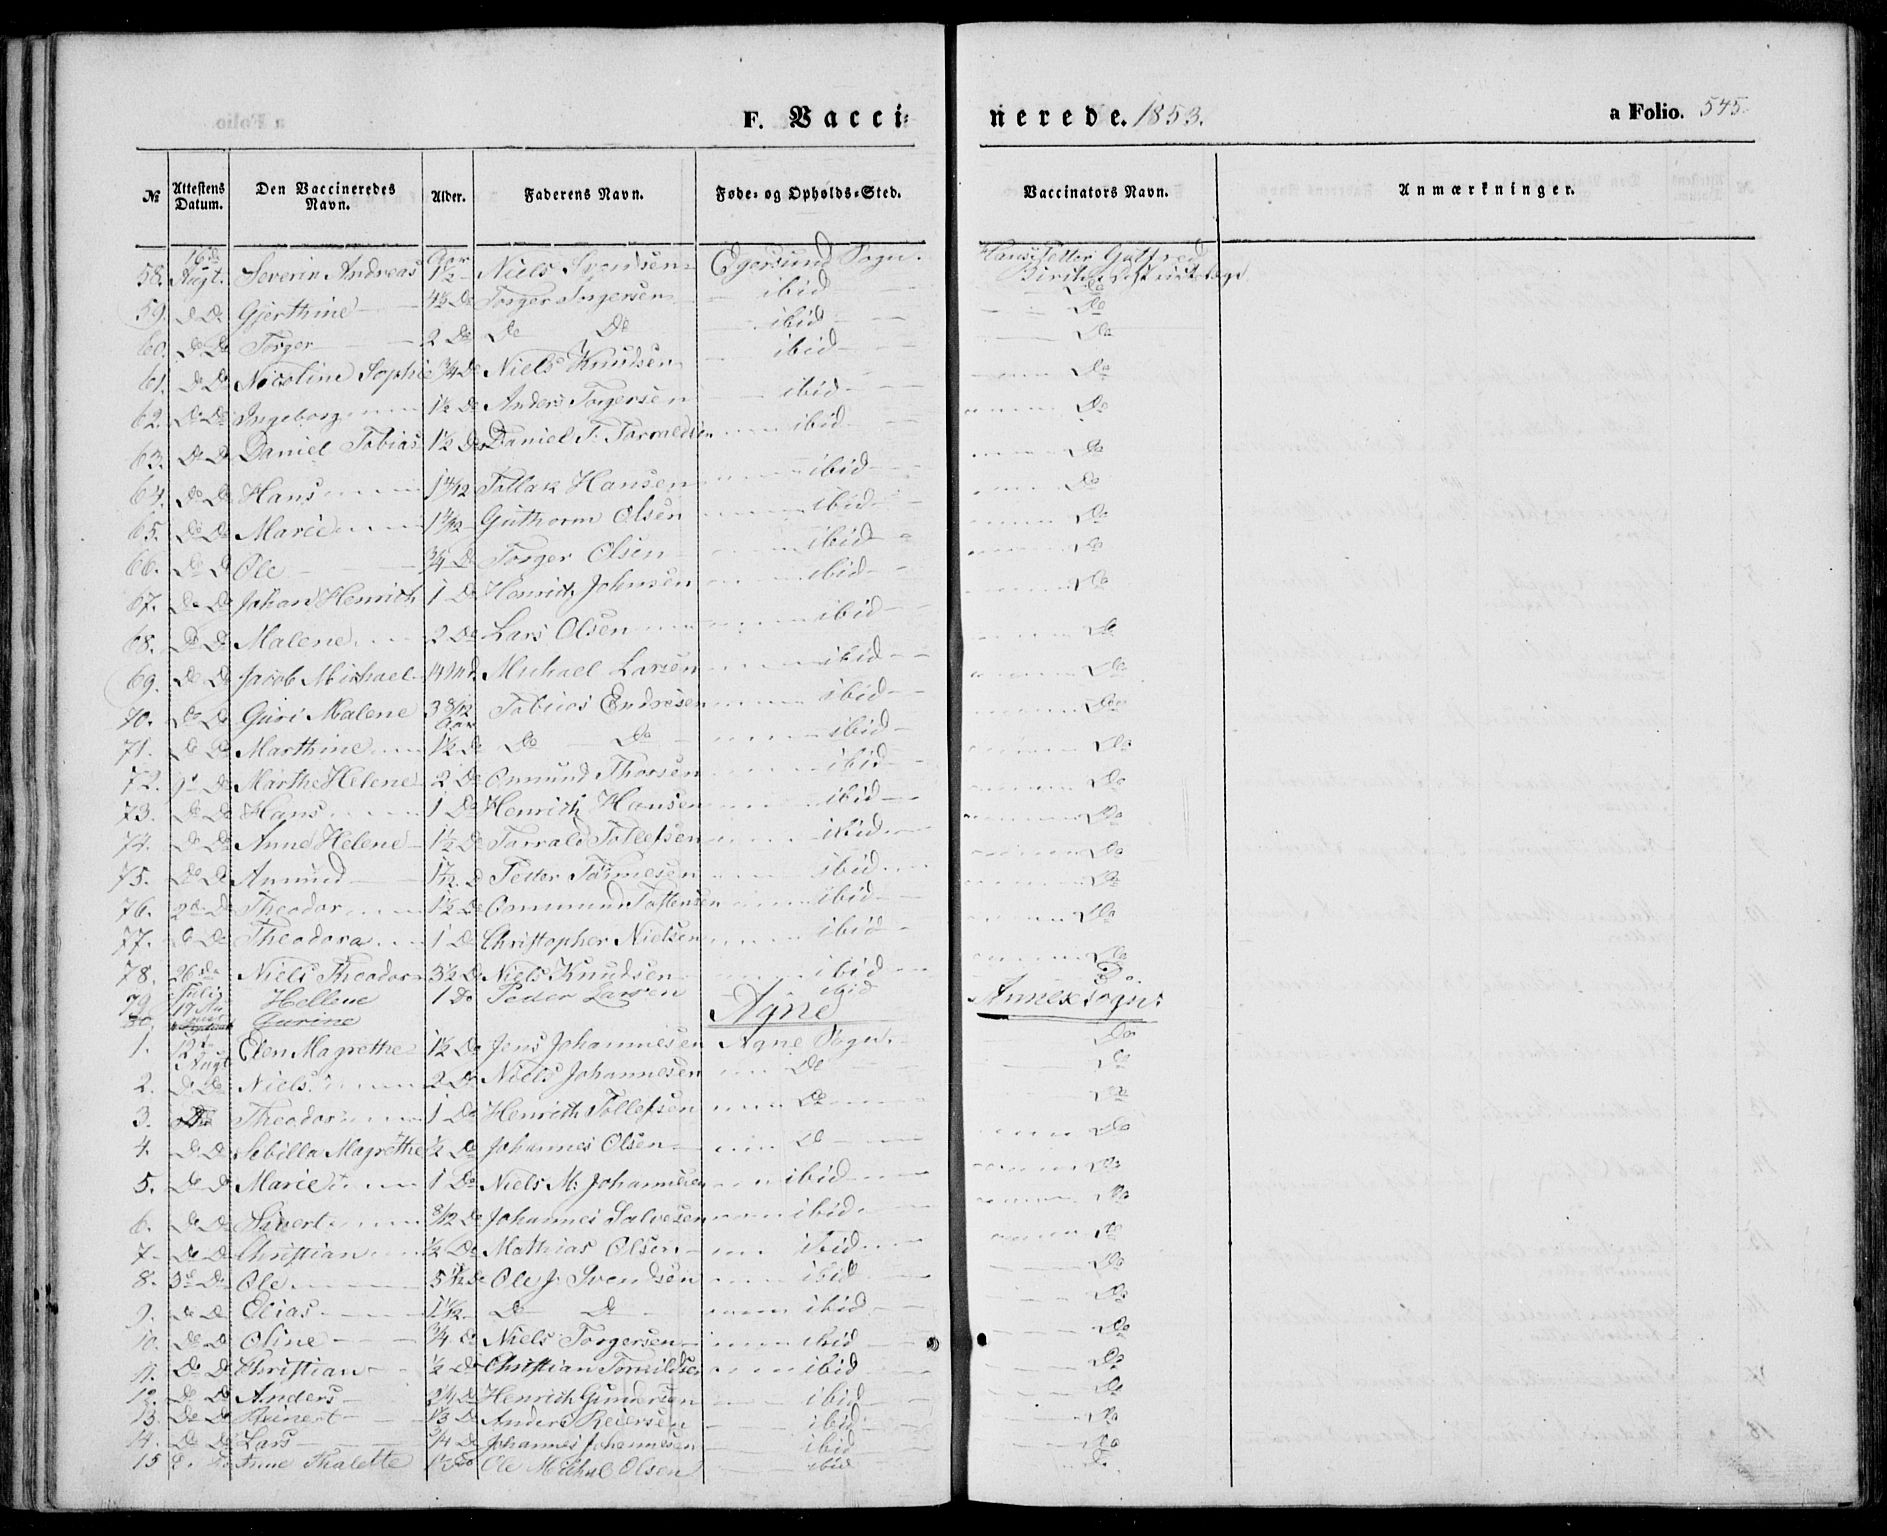 F. Vacci= nerede. 1853. a Folio. 545.
№ Attestens Datum. Den Vaccineredes Navn. Alder. Faderens Navn. Føde= og Opholds=Sted. Vaccinators Navn. Anmærkninger.
58. 16de Augt. Severin Andreas Aar 1½ Niels Svendsen Egersund Sogn. Hans Petter Gotfred
59. Do Do Gjerthine 4½ Do Torger Torgersen ibid Do
60. Do Do Torger 2 Do Do Do ibid Do
61. Do Do Nicoline Sophie ¾ Do Niels Knudsen ibid Do
62. Do Do Ingeborg 1½ Do Anders Torgersen ibid Do
63. Do Do Daniel Tobias 1½ Do Daniel T. Torvaldsen ibid Do
64. Do Do Hans 1 4/12 Tollak Hansen ibid Do
65. Do Do Marie 1 Guthorm Olsen ibid Do
66. Do Do Ole ¾ Do Torger Olsen ibid Do
67. Do Do Johan Henrich 1 Do Henrich Johnsen ibid Do
68. Do Do Malene 2 Do Lars Olsen ibid Do
69. Do Do Jacob Michael Michael Larsen ibid Do
70. Do Do Guri Malene 3 8/12 Aar Tobias Endresen ibid Do
71. Do Do Marthine 1½ Do Do Do ibid Do
72. 1st Do Marthe Helene 2 Do Omund Thorsen ibid Do
73. Do Do Hans 1 Do Henrich Hansen ibid Do
74. Do Do Anne Helene 1½ Do Torvald Tollefsen ibid Do
75. Do Do Amund Peder ibid Do
76. 2de Do Theodor 1½ Do Ommund Tostensen ibid Do
77. Do Do Theodora 1 Do Christopher Nielsen ibid Do
78. 26de Julii Niels Theodor 3½ Do Niels Knudsen ibid Do
79. 17 August Hellene 1 Do Peder Larsen ibid Do
80. Gurine
Agne Annex Sogn:
1. 12te Augt Elen Magrethe 1½ Do Jens Johannesen Agne Sogn. Do
2. Do Do Niels 2 Do Niels Johannesen Do Do
3. Do Theodor 1 Do Henrich Tollefsen Do Do
4. Do Do Sebilla Magrethe ½ Do Johannes Olsen Do Do
5. Do Do Marie 1 Do Niels M: Johannesen ibid Do
6. Do Do Sivert 8/12 Do Johannes Salvesen ibid Do
7. Do Do Christian ½ Do Mathias Olsen ibid Do
8. 3de Do Ole 5 Do Ole J. Svendsen ibid Do
9. Do Do Elias 1 Do Do ibid Do
10. Do Do Oline ¾ Do Niels Torgersen ibid Do
11. Do Do Christian ½ Do Christian Torkildsen ibid Do
12. Do Do Anders 2¼ Do Henrich Gundersen ibid Do
13. Do Do Reinert 1⅓ Do Anders Reiersen ibid Do
14. Do Do Lars ¾ Do Johannes Johannesen ibid Do
15 Do Do Anne Thalette 1½ Do Ole Michal Olsen ibid Do